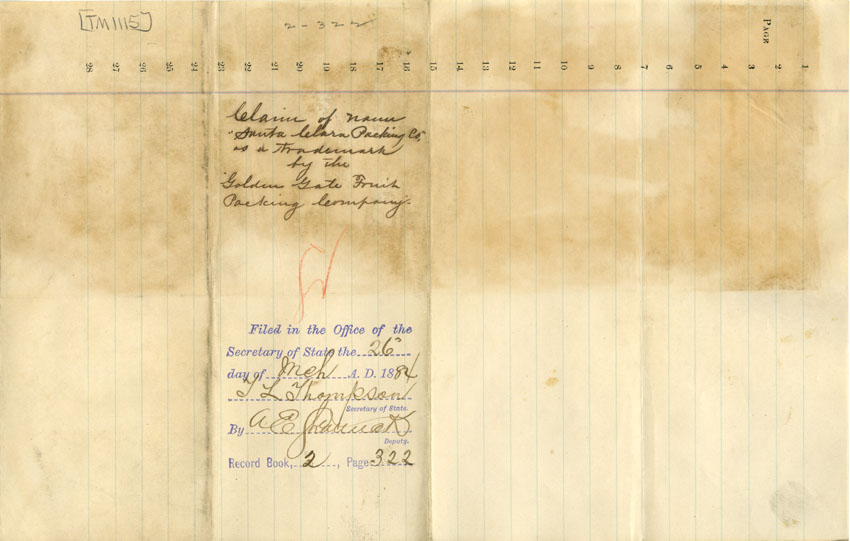 [TM1115]
2-322
PAGE
28 27 26 25 24 23 22 21 20 19 18 17 16 15 14 13 12 11 10 9 8 7 6 5 4 3 2 1
Claim of name
"Santa Clara Packing Co,"
as a trademark
by the
Golden Gate Fruit
Packing Company.
Filed in the Office of the
Secretary of State the 26"
day of Mch A. D. 1884
T L Thompson
Secretary of State.
By A E
Deputy.
Record Book, 2, Page 322